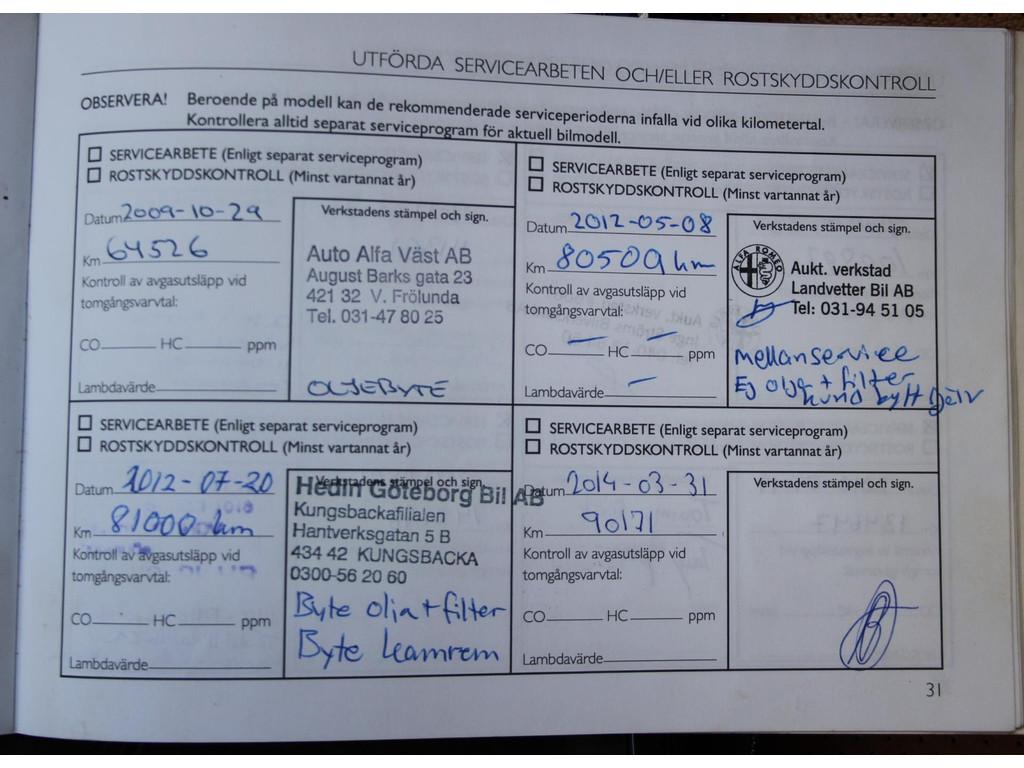 UTFÖRDA SERVICEARBETEN OCH/ELLER ROSTSKYDDSKONTROLL
OBSERVERA! Beroende på modell kan de rekommenderade serviceperioderna infalla vid olika kilometertal.
Kontrollera alltid separat serviceprogram för aktuell bilmodell.
SERVICEARBETE (Enligt separat serviceprogram)
ROSTSKYDDSKONTROLL (Minst vartannat år)
Datum 2009-10-29
Km 64526
Kontroll av avgasutsläpp vid
tomgångsvarvtal:
CO HC ppm
Lambdavärde
Verkstadens stämpel och sign.
Auto Alfa Väst AB
August Barks gata 23
421 32 V. Frölunda
Tel. 031-47 80 25
OLJEBYTE
SERVICEARBETE (Enligt separat serviceprogram)
ROSTSKYDDSKONTROLL (Minst vartannat år)
Datum 2012-05-08
Km 80509 km
Kontroll av avgasutsläpp vid
tomgångsvarvtal:
CO — HC — ppm
Lambdavärde —
Verkstadens stämpel och sign.
ALFA ROMEO
Aukt. verkstad
Landvetter Bil AB
Tel: 031-94 51 05
Mellanservice
Ej olja + filter
kund bytt själv
SERVICEARBETE (Enligt separat serviceprogram)
ROSTSKYDDSKONTROLL (Minst vartannat år)
Datum 2012-07-20
Km 81000 km
Kontroll av avgasutsläpp vid
tomgångsvarvtal:
CO HC ppm
Lambdavärde
Verkstadens stämpel och sign.
Hedin Göteborg Bil AB
Kungsbackafilialen
Hantverksgatan 5 B
434 42 KUNGSBACKA
0300-56 20 60
Byte olja + filter
Byte kamrem
SERVICEARBETE (Enligt separat serviceprogram)
ROSTSKYDDSKONTROLL (Minst vartannat år)
Datum 2014-03-31
Km 90171
Kontroll av avgasutsläpp vid
tomgångsvarvtal:
CO HC ppm
Lambdavärde
Verkstadens stämpel och sign.
31